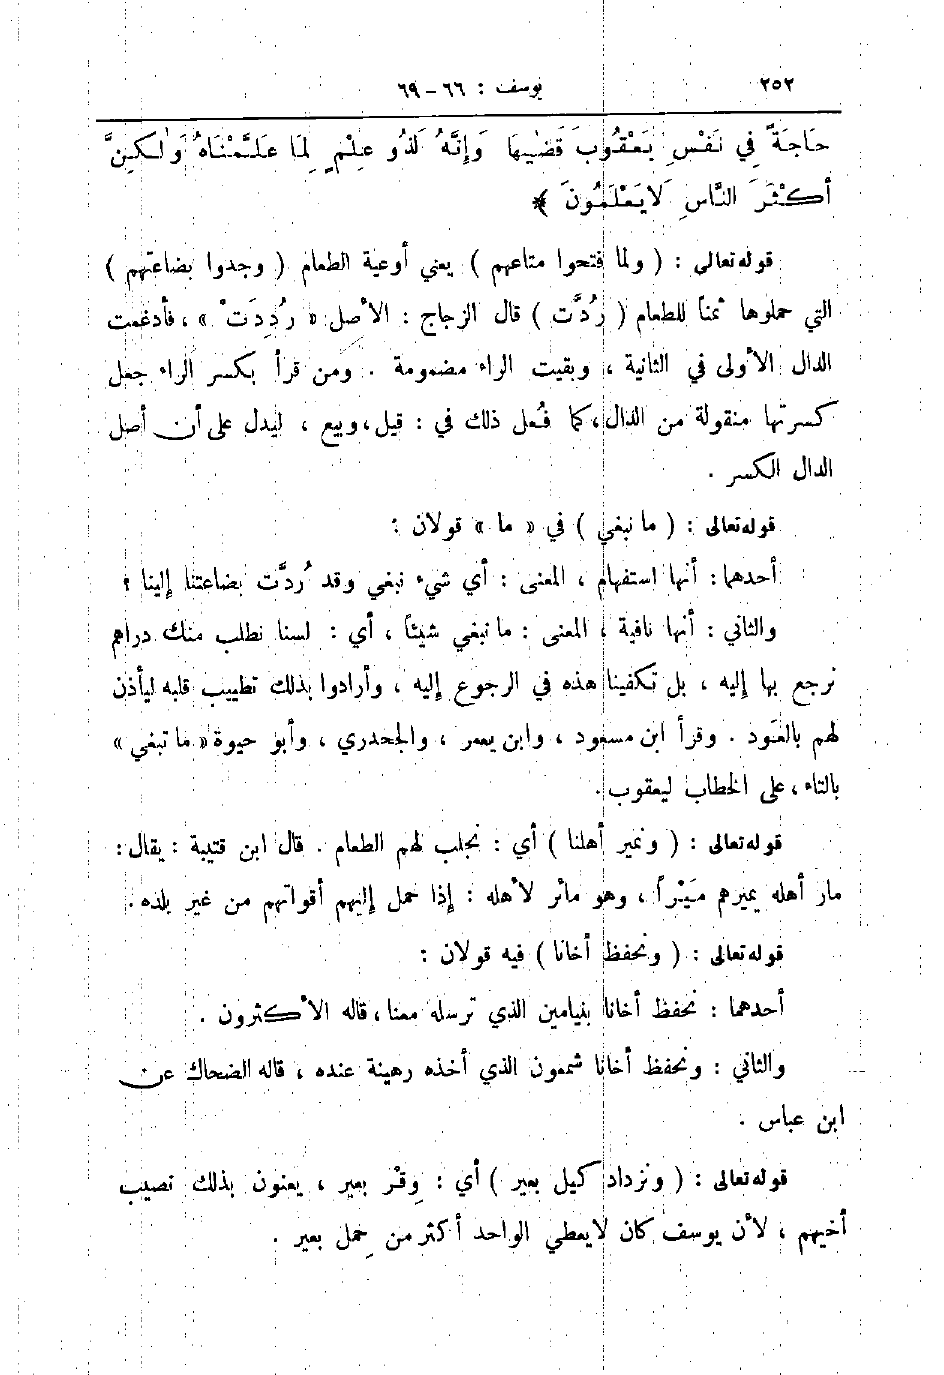 ٢٥٢ يوسف : ٦٦ – ٦٩
حَاجَةً فِي نَفْسِ يَعْقُوبَ قَضٰيهَا وَإِنَّهُ لَذُو عِلْمٍ لِمَا عَلَّمْنَاهُ وَلٰكِنَّ
أَكْثَرَ النَّاسِ لَايَعْلَمُونَ ﴾
قوله تعالى : ( ولما فتحوا متاعهم ) يعني أوعية الطعام ( وجدوا بضاعتهم )
التي حملوها ثمناً للطعام ( رُدَّت ) قال الزجاج : الأصل « رُدِدَتْ » ، فأدغمت
الدال الأولى في الثانية ، وبقيت الراء مضمومة . ومن قرأ بكسر الراء جعل
كسرتها منقولة من الدال ، كما فُعل ذلك في : قيل ، وبيع ، ليدل على أن أصل
الدال الكسر .
قوله تعالى : ( ما نبغي ) في « ما » قولان :
أحدهما : أنها استفهام ، المعنى : أي شيء نبغي وقد رُدَّت بضاعتنا إلينا ؟
والثاني : أنها نافية ، المعنى : ما نبغي شيئاً ، أي : لسنا نطلب منك دراهم
نرجع بها إليه ، بل تكفينا هذه في الرجوع إليه ، وأرادوا بذلك تطييب قلبه ليأذن
لهم بالعَود . وقرأ ابن مسعود ، وابن يعمر ، والجحدري ، وأبو حيوة « ما تبغي »
بالتاء ، على الخطاب ليعقوب .
قوله تعالى : ( ونمير أهلنا ) أي : نجلب لهم الطعام . قال ابن قتيبة : يقال :
مار أهله يميرهم مَيْراً ، وهو مائر لأهله : إذا حمل إليهم أقواتهم من غير بلده .
قوله تعالى : ( ونحفظ أخانا ) فيه قولان :
أحدهما : نحفظ أخانا بنيامين الذي ترسله معنا ، قاله الأكثرون .
والثاني : ونحفظ أخانا شمعون الذي أخذه رهينة عنده ، قاله الضحاك عن
ابن عباس .
قوله تعالى : ( ونزداد كيل بعير ) أي : وِقْر بعير ، يعنون بذلك نصيب
أخيهم ، لأن يوسف كان لايعطي الواحد أكثر من حِمل بعير .